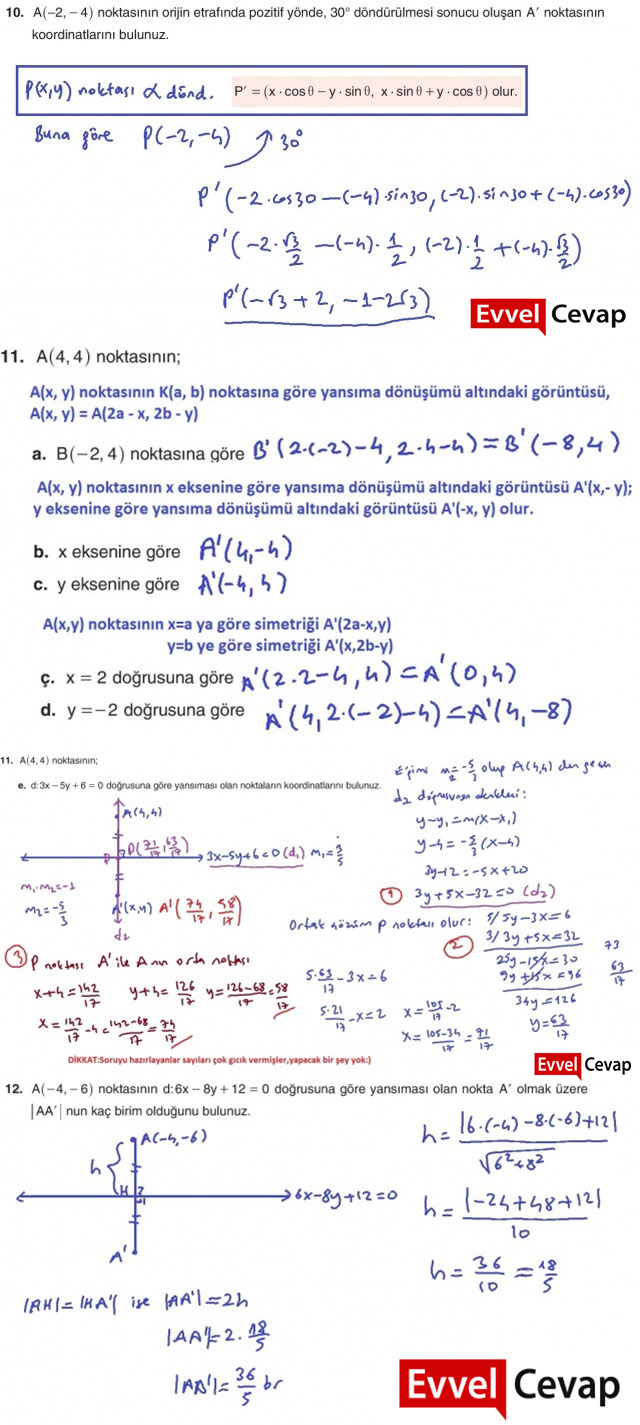 10. A(−2, − 4) noktasının orijin etrafında pozitif yönde, 30° döndürülmesi sonucu oluşan A′ noktasının
koordinatlarını bulunuz.
P(x,y) noktası α dönd. P′ = (x · cos θ − y · sin θ, x · sin θ + y · cos θ) olur.
Buna göre P(-2,-4) 30°
P'(-2.cos30 -(-4).sin30, (-2).sin30+(-4).cos30)
P'(-2.√3/2 -(-4).1/2, (-2).1/2 +(-4).√3/2)
P'(-√3+2, -1-2√3)
Evvel Cevap
11. A(4, 4) noktasının;
A(x, y) noktasının K(a, b) noktasına göre yansıma dönüşümü altındaki görüntüsü,
A(x, y) = A(2a - x, 2b - y)
a. B(−2, 4) noktasına göre B'(2.(-2)-4, 2.4-4)=B'(-8,4)
A(x, y) noktasının x eksenine göre yansıma dönüşümü altındaki görüntüsü A'(x,- y);
y eksenine göre yansıma dönüşümü altındaki görüntüsü A'(-x, y) olur.
b. x eksenine göre A'(4,-4)
c. y eksenine göre A'(-4,4)
A(x,y) noktasının x=a ya göre simetriği A'(2a-x,y)
y=b ye göre simetriği A'(x,2b-y)
ç. x = 2 doğrusuna göre A'(2.2-4,4)=A'(0,4)
d. y =−2 doğrusuna göre A'(4,2.(-2)-4)=A'(4,-8)
11. A(4, 4) noktasının;
e. d:3x − 5y + 6 = 0 doğrusuna göre yansıması olan noktaların koordinatlarını bulunuz.
Eğimi m₂=-5/3 olup A(4,4) den geçen
d₂ doğrusunun denklemi:
y-y₁=m(x-x₁)
y-4=-5/3(x-4)
3y-12=-5x+20
① 3y+5x-32=0 (d₂)
A(4,4)
P(71/17, 63/17)
3x-5y+6=0 (d₁) m₁=3/5
m₁.m₂=-1
m₂=-5/3
A'(x,y) A'(74/17, 58/17)
d₂
Ortak çözüm P noktası olur: 5/5y-3x=6
② 3/3y+5x=32
25y-15x=30
9y+15x=96
34y=126
y=63/17
73
63/17
③ P noktası A' ile A nın orta noktası
x+4=142/17 y+4=126/17 y=126-68/17=58/17
x=142/17-4=142-68/17=74/17
5.63/17-3x=6
5.21/17-x=2 x=105/17-2
x=105-34/17=71/17
DİKKAT:Soruyu hazırlayanlar sayıları çok gıcık vermişler,yapacak bir şey yok:)
Evvel Cevap
12. A(−4, −6) noktasının d:6x − 8y + 12 = 0 doğrusuna göre yansıması olan nokta A′ olmak üzere
|AA′| nun kaç birim olduğunu bulunuz.
A(-4,-6)
h
H
6x-8y+12=0
A'
h=|6.(-4)-8.(-6)+12|/√6²+8²
h=|-24+48+12|/10
h=36/10=18/5
|AH|=|HA'| ise |AA'|=2h
|AA'|=2.18/5
|AA'|=36/5 br
Evvel Cevap